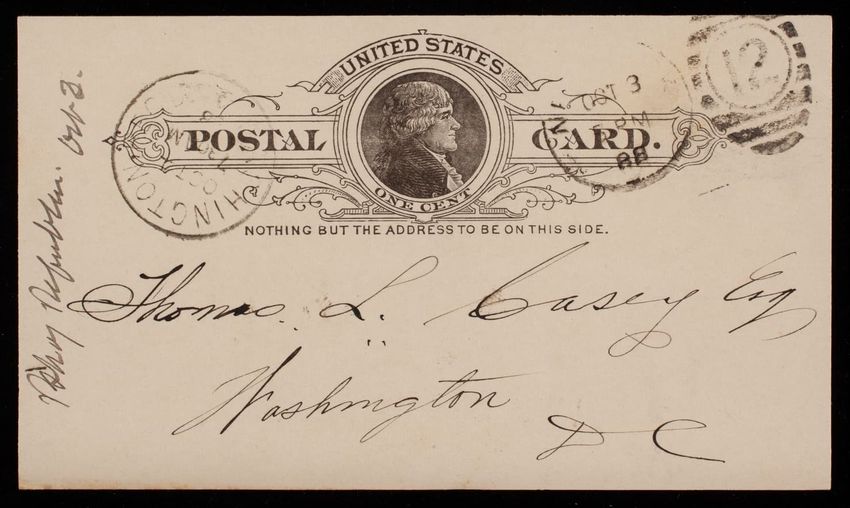 UNITED STATES
POSTAL CARD.
ONE CENT
NOTHING BUT THE ADDRESS TO BE ON THIS SIDE.
HINGTON
OCT 3
PM
88
12
Thomas. L. Casey Esq
Washington
D C
Oct 2.